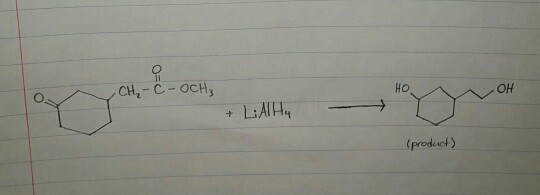 O
O CH₂-C-OCH₃
+ LiAlH₄
HO OH
(product)